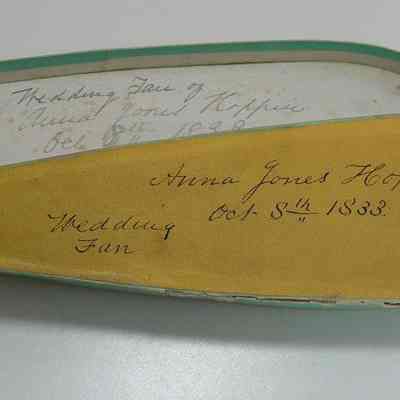 Wedding Fan of
Anna Jones Hoppin
Oct 8th 1833
Anna Jones Hop
Oct 8th 1833.
Wedding
Fan